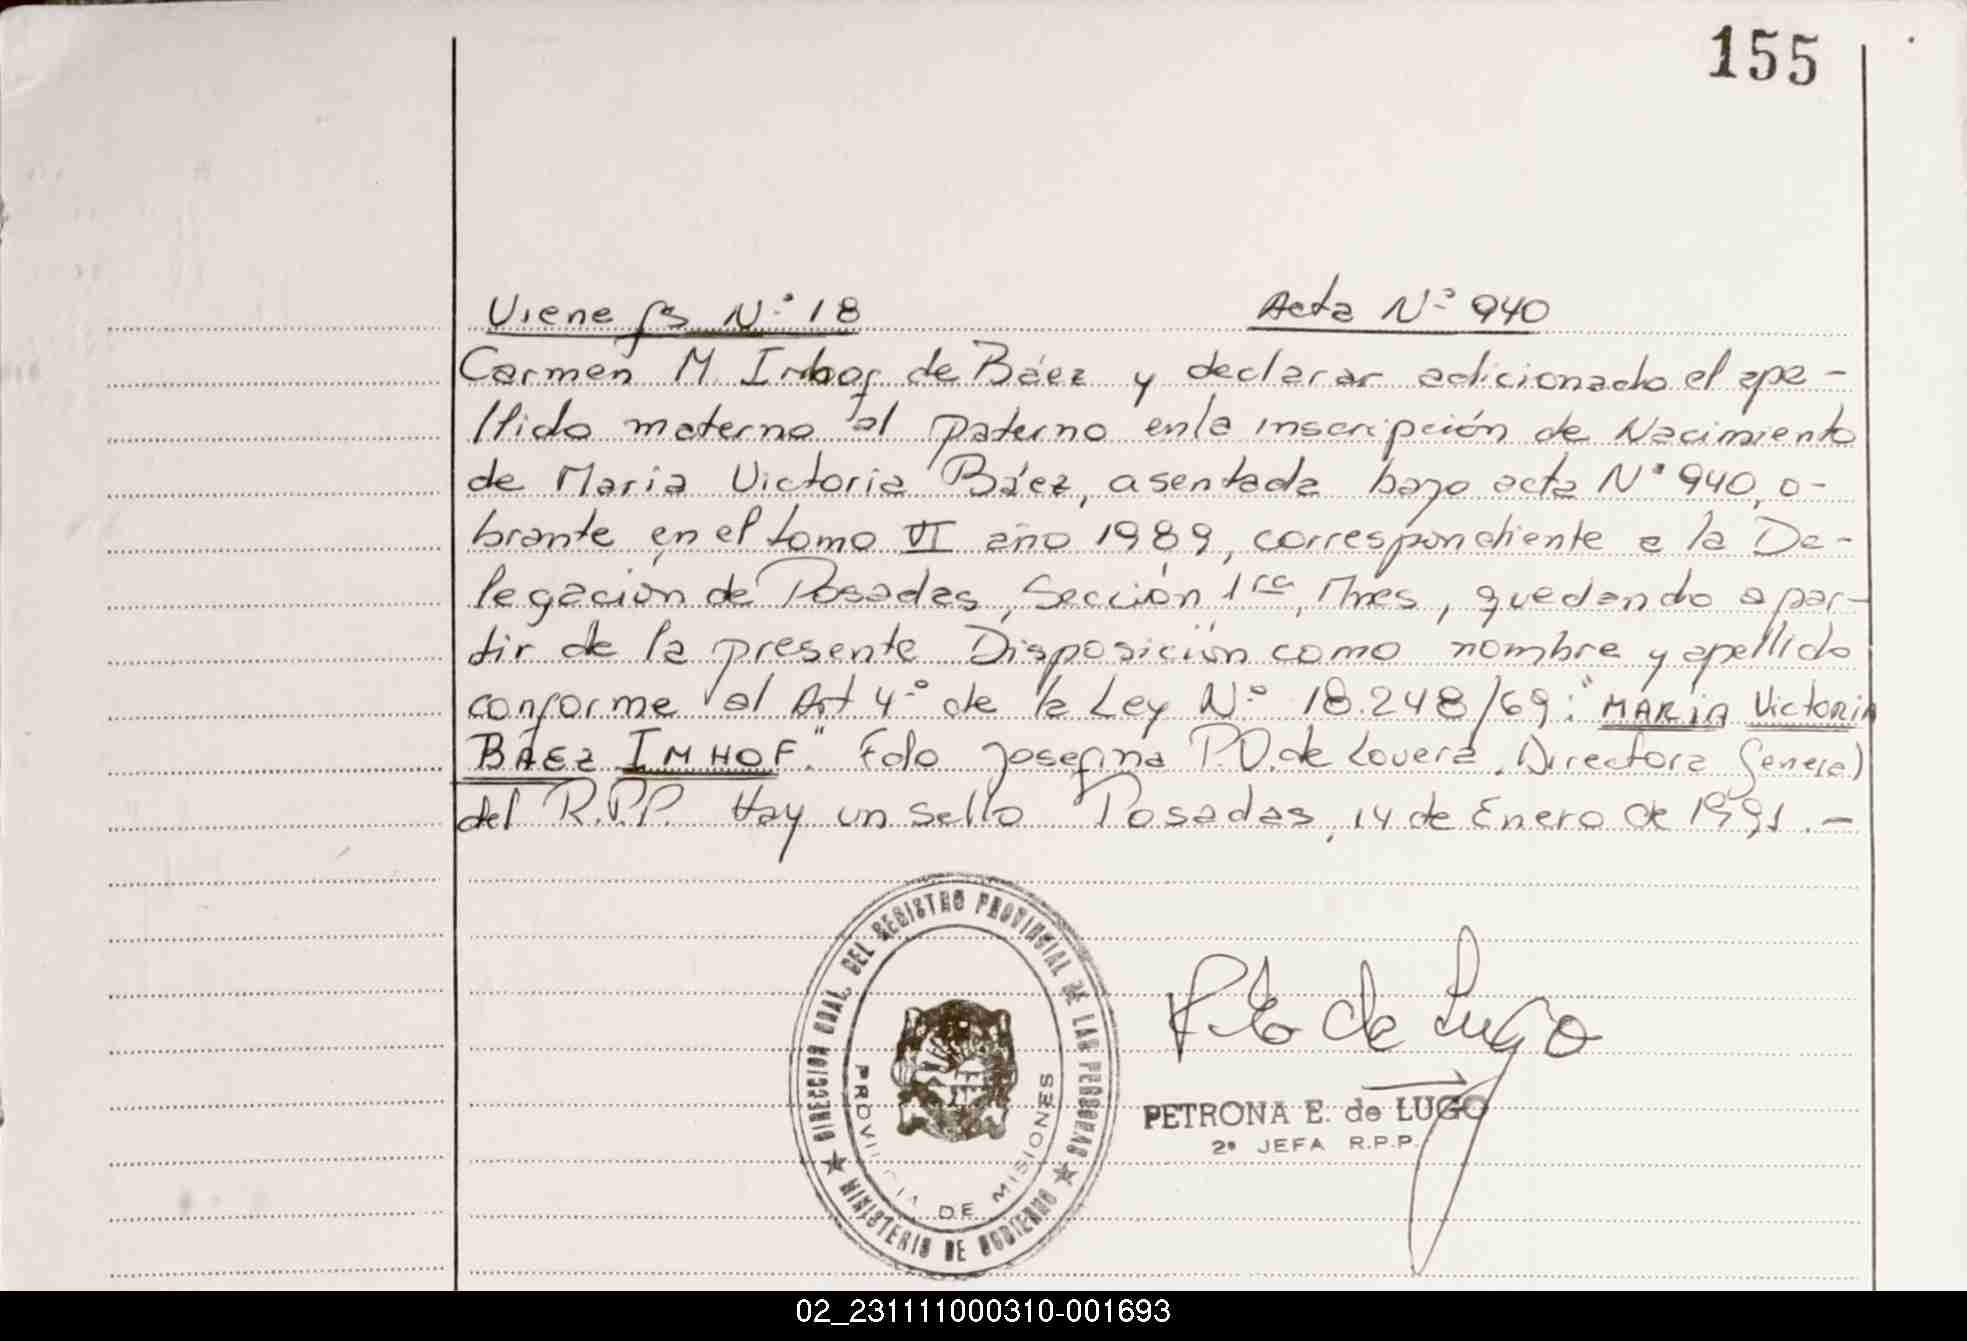 155
Viene fs N.º 18 Acta Nº 940
Carmen M. Imhof de Báez y declarar adicionado el ape-
llido materno al paterno en la inscripción de Nacimiento
de Maria Victoria Báez, asentada bajo acta Nº 940, o-
brante en el tomo VI año 1989, correspondiente a la De-
legación de Posadas, Sección 1ra, Mnes, quedando a par-
tir de la presente Disposición como nombre y apellido
conforme al Art 4º de la Ley Nº 18.248/69: "MARIA Victoria
BÁEZ IMHOF." Fdo Josefina P.D. de Lovera. Directora General
del R.P.P. Hay un sello Posadas, 14 de Enero de 1991.-
DIRECCION GRAL. DEL REGISTRO PROVINCIAL DE LAS PERSONAS
MINISTERIO DE GOBIERNO
PROVINCIA DE MISIONES
de Lugo
PETRONA E. de LUGO
2ª JEFA R.P.P.
02_231111000310-001693